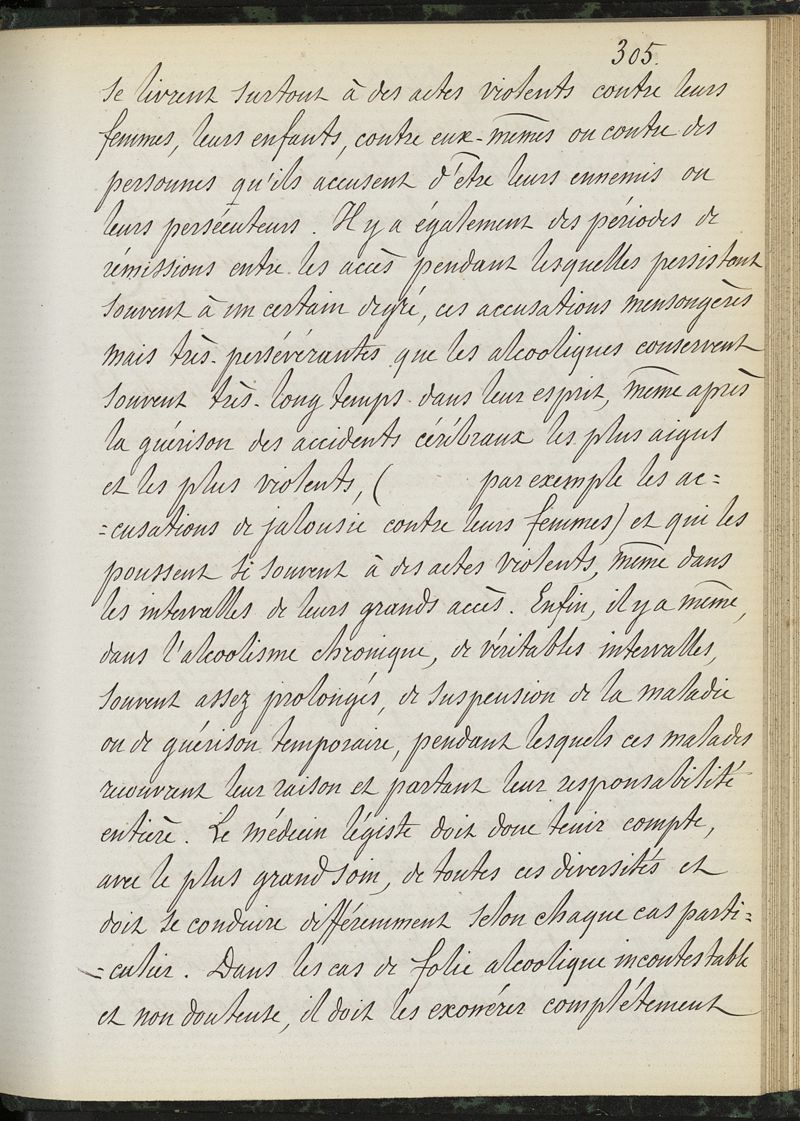 305.
se livrent surtout à des actes violents contre leurs
femmes, leurs enfants, contre eux-mêmes ou contre des
personnes qu'ils accusent d'être leurs ennemis ou
leurs persécuteurs. Il y a également des périodes de
rémissions entre les accès pendant lesquelles persistent
souvent à un certain degré, ces accusations mensongères
mais très-persévérantes que les alcooliques conservent
souvent très-longtemps dans leur esprit, même après
la guérison des accidents cérébraux les plus aigus
et les plus violents, ( par exemple les ac=
=cusations de jalousie contre leurs femmes) et qui les
poussent si souvent à des actes violents, même dans
les intervalles de leurs grands accès. Enfin, il y a même,
dans l'alcoolisme chronique, de véritables intervalles,
souvent assez prolongés, de suspension de la maladie
ou de guérison temporaire, pendant lesquels ces malades
recouvrent leur raison et partant leur responsabilité
entière. Le médecin légiste doit donc tenir compte,
avec le plus grand soin, de toutes ces diversités et
doit se conduire différemment selon chaque cas parti=
=culier. Dans les cas de folie alcoolique incontestable
et non douteuse, il doit les exonérer complétement